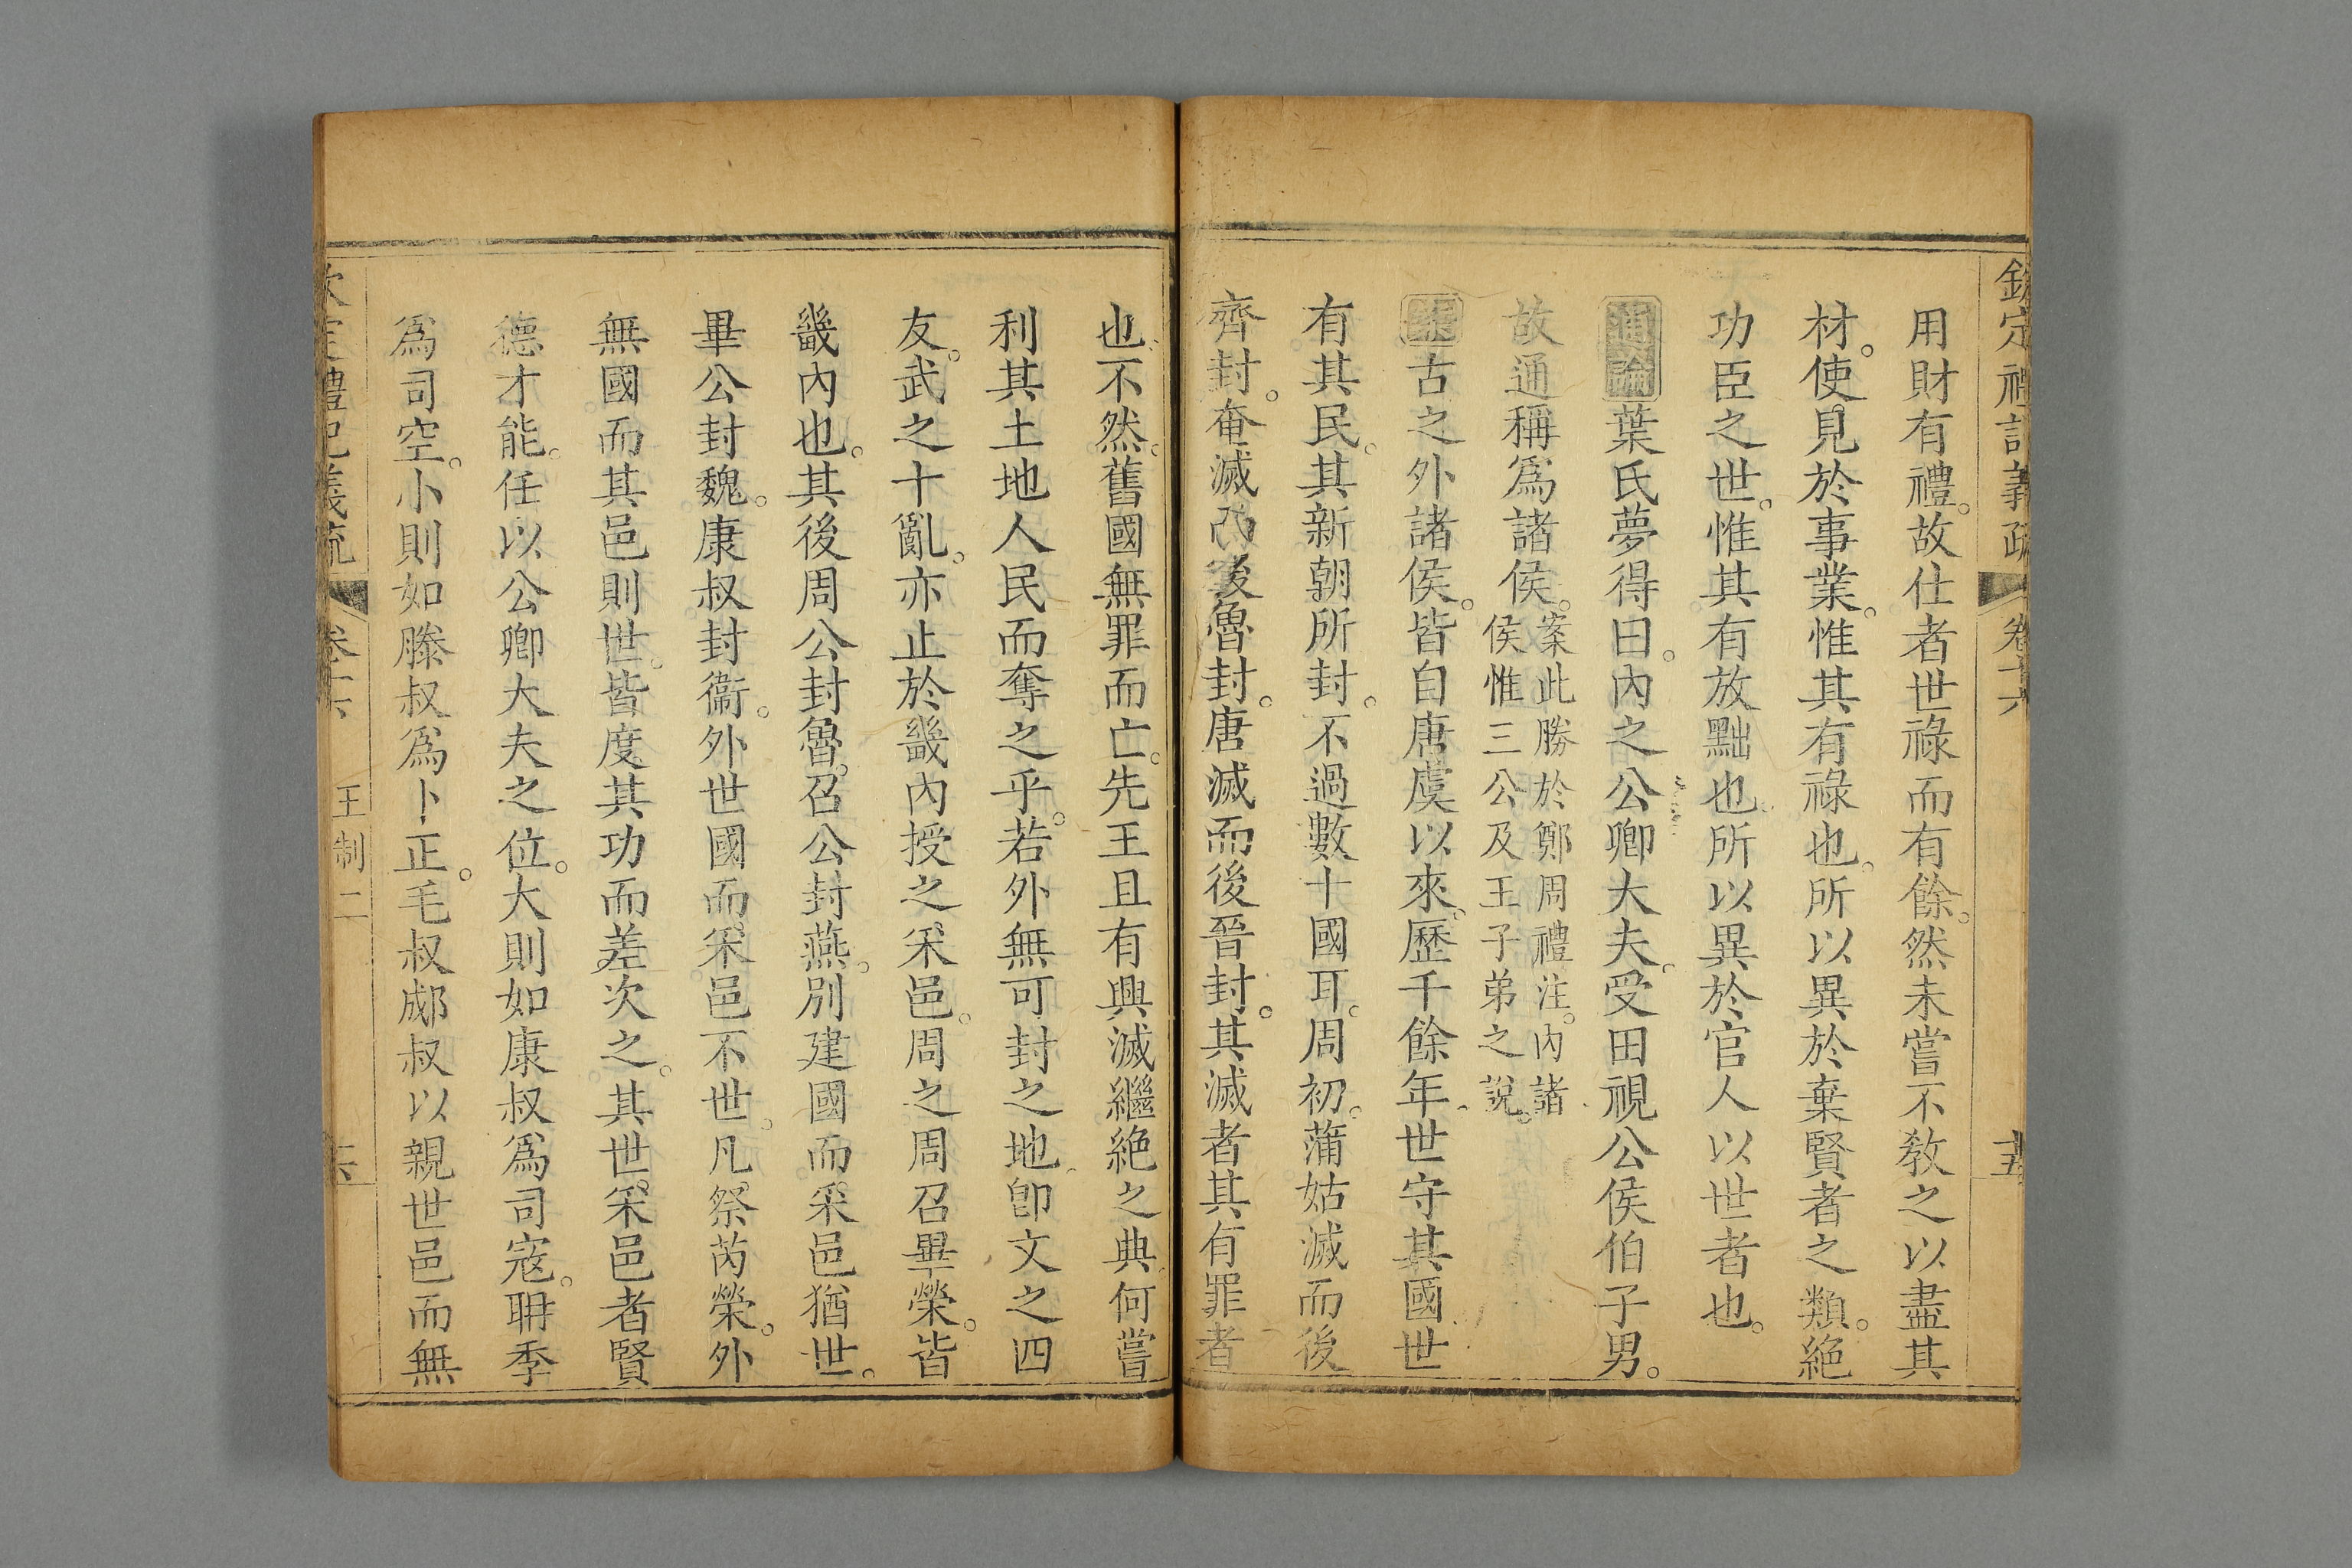 欽定禮記義疏 卷十六 十五
用財有禮。故仕者世祿而有餘。然未嘗不敎之以盡其
材。使見於事業。惟其有祿也。所以異於棄賢者之類。絕
功臣之世。惟其有放黜也。所以異於官人以世者也。
通論葉氏夢得曰。內之公卿大夫。受田視公侯伯子男。
故通稱爲諸侯。
案此勝於鄭周禮注。內諸
侯惟三公及王子弟之說。
案古之外諸侯。皆自唐虞以來。歷千餘年。世守其國世
有其民。其新朝所封。不過數十國耳。周初。蒲姑滅而後
齊封。奄滅後魯封。唐滅而後晉封。其滅者其有罪者
也。不然。舊國無罪而亡。先王且有興滅繼絕之典。何嘗
利其土地人民而奪之乎。若外無可封之地。卽文之四
友。武之十亂。亦止於畿內授之采邑。周之周召畢榮。皆
畿內也。其後周公封魯。召公封燕。別建國而采邑猶世。
畢公封魏。康叔封衞。外世國而采邑不世。凡祭芮榮。外
無國而其邑則世。皆度其功而差次之。其世采邑者賢
德才能。任以公卿大夫之位。大則如康叔爲司寇。聃季
爲司空。小則如滕叔爲卜正。毛叔郕叔以親世邑而無
欽定禮記義疏 卷十六 王制二 十六